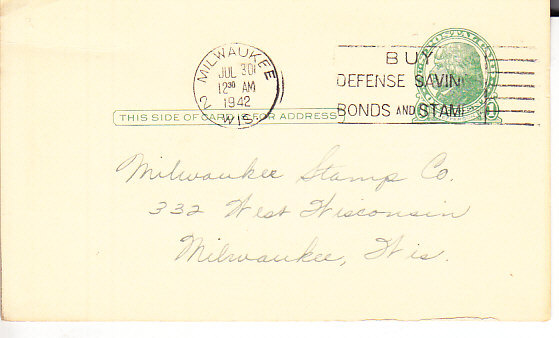 MILWAUKEE
JUL 30
12 30 AM
1942
2 WIS.
BUY
DEFENSE SAVIN
BONDS AND STAM
THIS SIDE OF CARD IS FOR ADDRESS
Milwaukee Stamp Co.
332 West Wisconsin
Milwaukee, Wis.